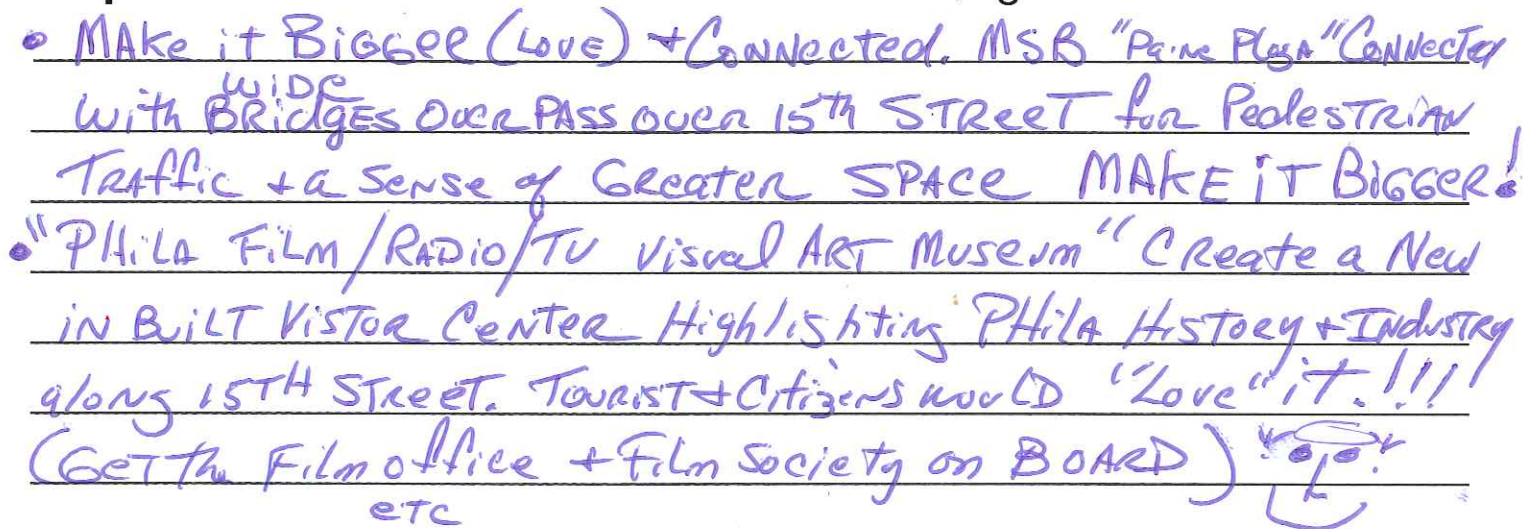 • MAke it BiGGeR (LOVE) + CoNNected. MSB "Paine Plaza" CoNNected
WiDe
with BRidgES OveR PASS oveR 15th STReeT foR PedeSTRiAN
TRAffic + a SeNse of GReateR SPACe MAKE iT BiGGeR!
• "PHiLA FiLm/RADio/TV Visual ART Museum" CReate a New
iN BuiLT VisToR CeNTeR Highlighting PHiLA HisToRy + INdusTRy
along 15TH STReeT. TouRiST + Citizens wouLD "Love" iT.!!!
(GeT the Film office + Film Society on BOARD)
eTC